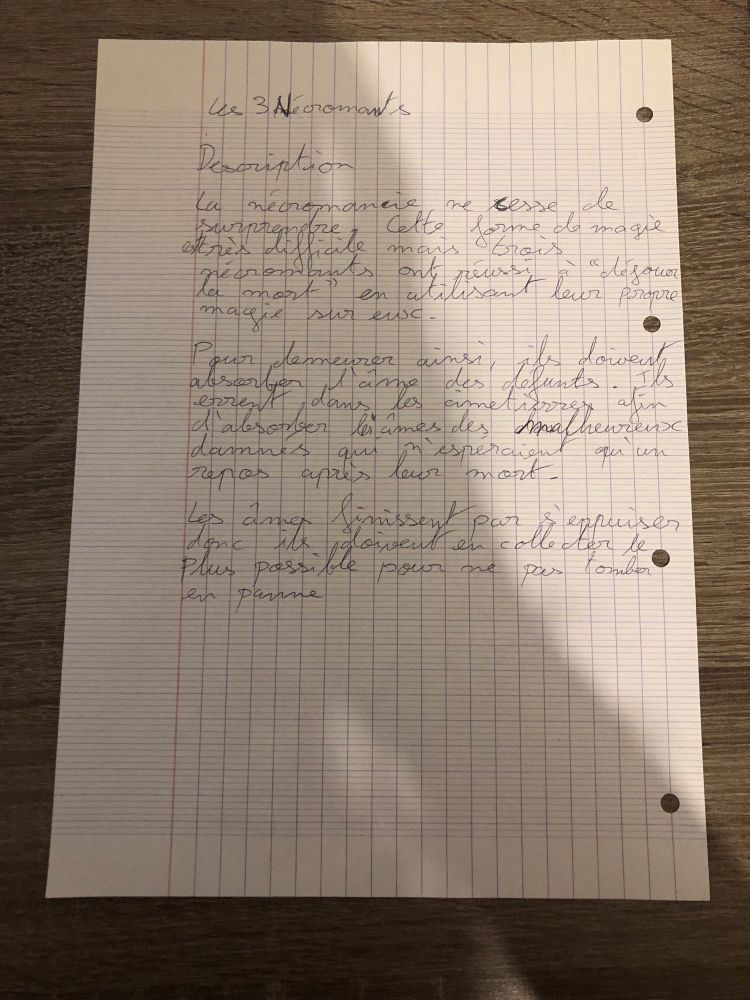 Les 3 Nécromants
Description
La nécromancie ne cesse de
surprendre. Cette forme de magie
est très difficile mais trois
nécromants ont réussi à "déjouer
la mort" en utilisant leur propre
magie sur eux.
Pour demeurer ainsi, ils doivent
absorber l'âme des défunts. Ils
errent dans les cimetières afin
d'absorber les âmes des malheureux
damnés qui n'espéraient qu'un
repos après leur mort.
Les âmes finissent par s'épuiser
donc ils doivent en collecter le
plus possible pour ne pas tomber
en panne